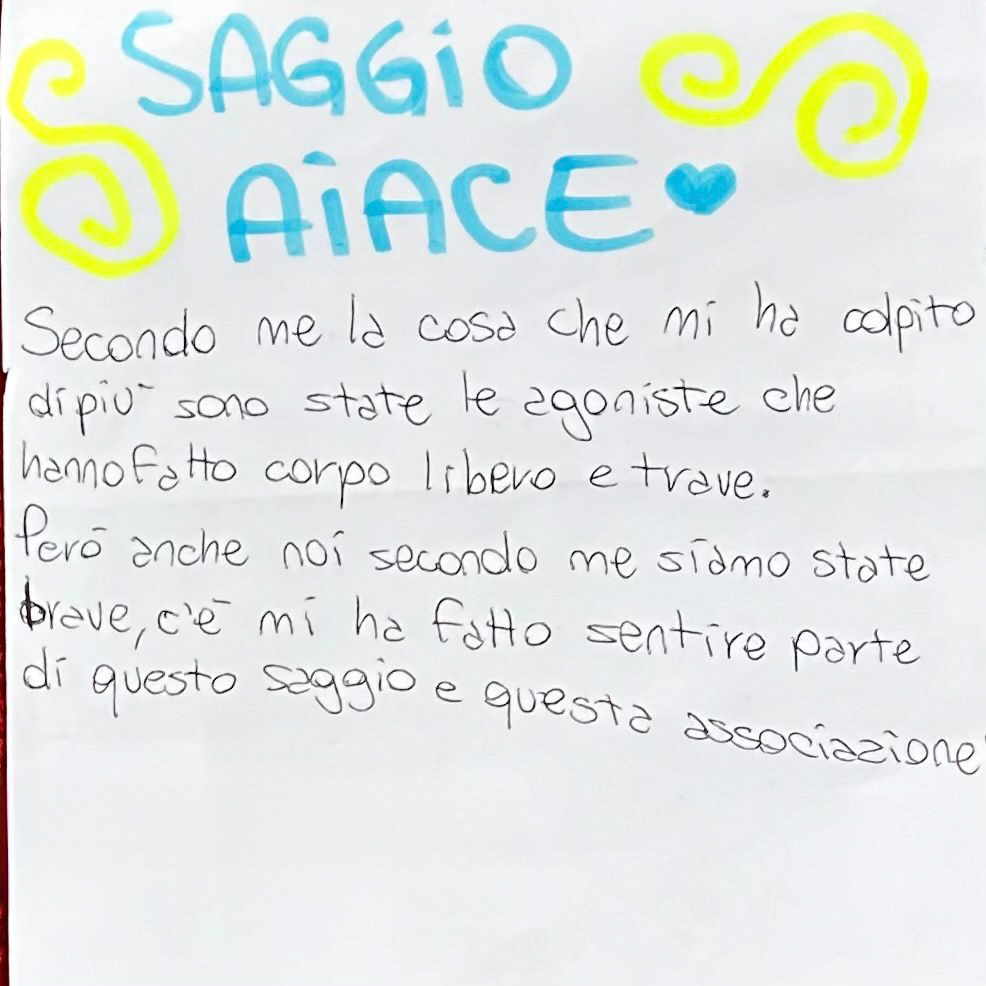 SAGGiO
AiACE
Secondo me la cosa che mi ha colpito
di più sono state le agoniste che
hanno fatto corpo libero e trave.
Però anche noi secondo me siamo state
brave, c'è mi ha fatto sentire parte
di questo saggio e questa associazione